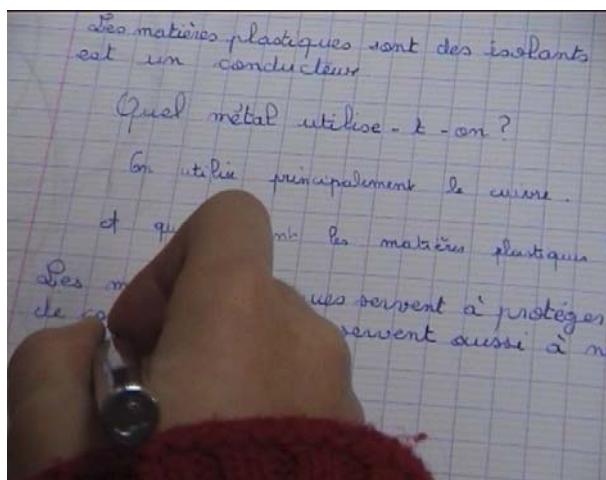 Les matières plastiques sont des isolants
est un conducteur
Quel métal utilise-t-on?
On utilise principalement le cuivre.
et les matières plastiques
Les servent à protéger
de servent aussi à